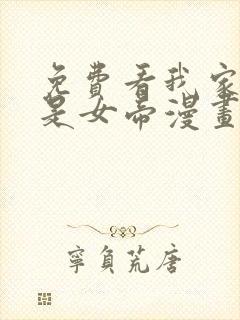 免費看我家
是女帝漫畫
寧負荒唐